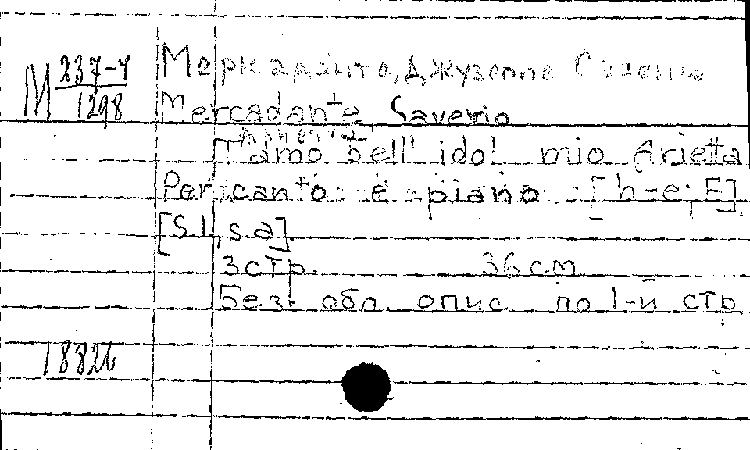 M 237-4
1298
Меркаданте, Джузеппе Саверио
Mercadante Saverio
T'amo bell' idol mio Arietta
Per canto e piano [h-e; E]
[S.l., s.a]
3 стр. 36 см
Без обл. опис. по 1-й стр